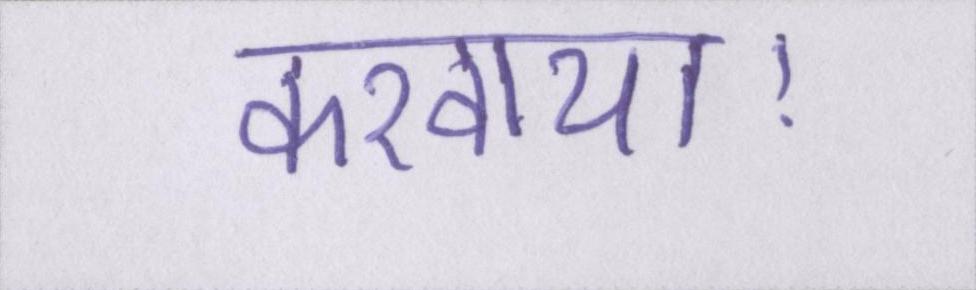 करवाया!